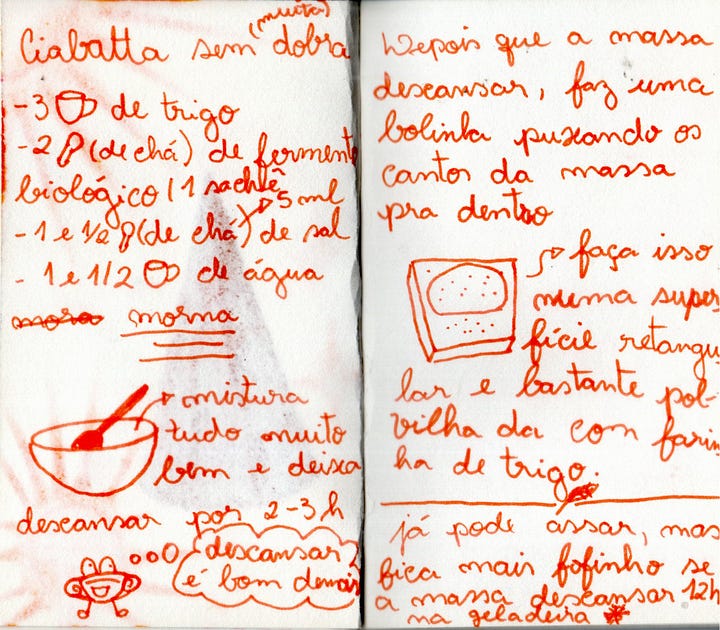 Ciabatta sem (muita) dobra
-3 de trigo
-2 (de chá) de fermento
biológico / 1 sachlê
5 ml
- 1 e 1/2 (de chá) de sal
- 1 e 1/2 de água
mora morna
mistura
tudo muito
bem e deixa
descansar por 2-3 h
descansar
é bom demais
Depois que a massa
descansar, faz uma
bolinha puxando os
cantos da massa
pra dentro
faça isso
numa super
fície retangu
lar e bastante pol-
vilha da com farin
ha de trigo.
já pode assar, mas
fica mais fofinho se
a massa descansar 12h
na geladeira *